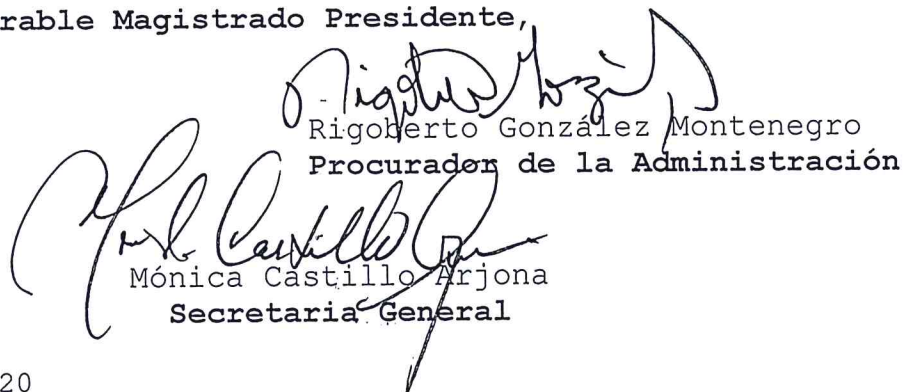 rable Magistrado Presidente,
Rigoberto González Montenegro
Procurador de la Administración
Mónica Castillo Arjona
Secretaria General
20